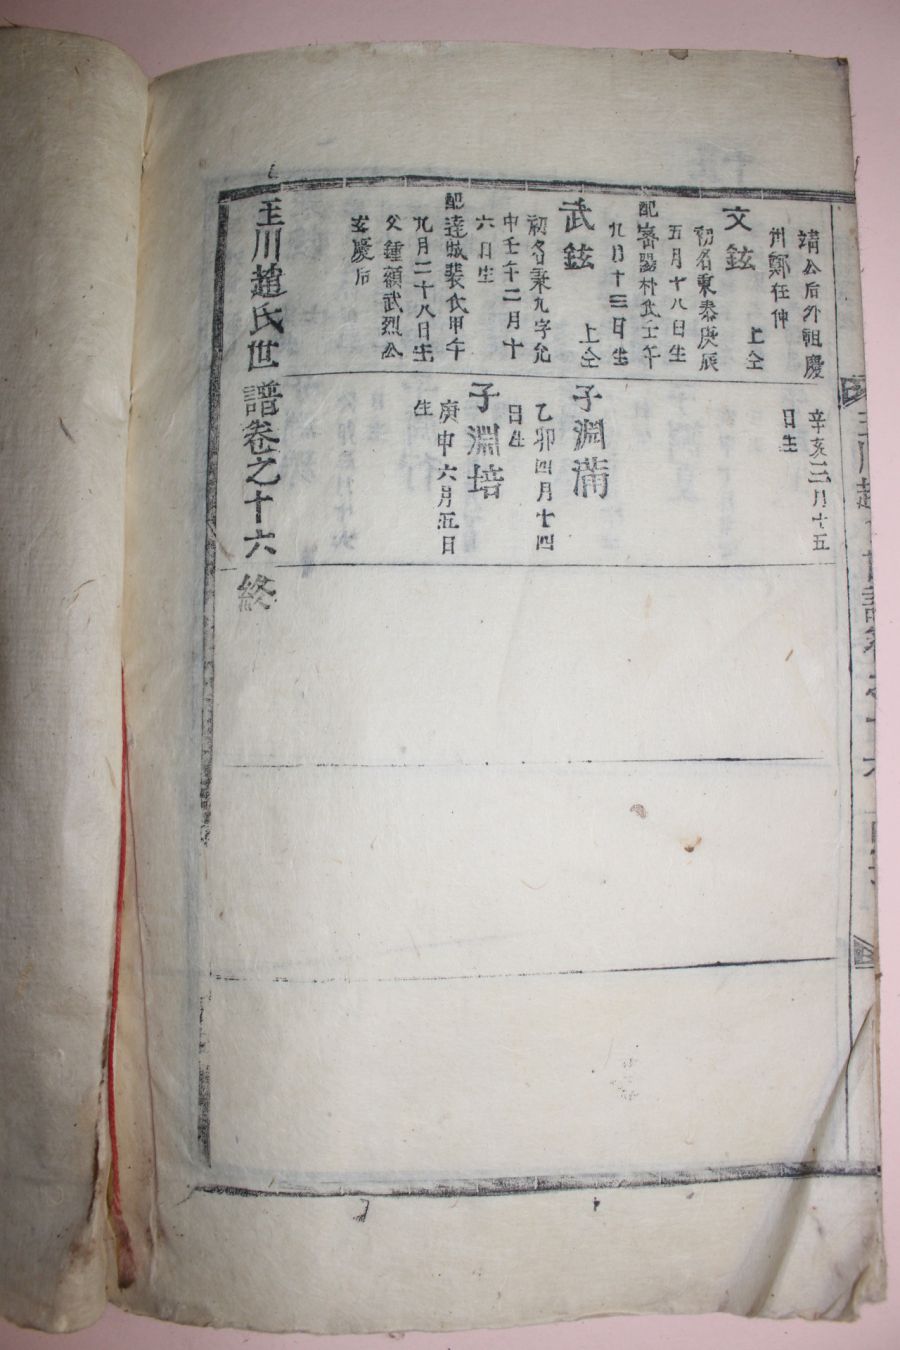 靖公后外祖慶
州鄭在仲
文鉉
上仝
初名秉泰庚辰
五月十八日生
配密陽朴氏壬午
九月十三日生
武鉉
上仝
初名秉九字允
中壬午二月十
六日生
配達城裴氏甲午
九月二十八日生
父鍾顯武烈公
玄慶后
辛亥三月十五
日生
子淵滿
乙卯四月十四
日生
子淵培
庚申六月五日
生
玉川趙氏世譜卷之十六終